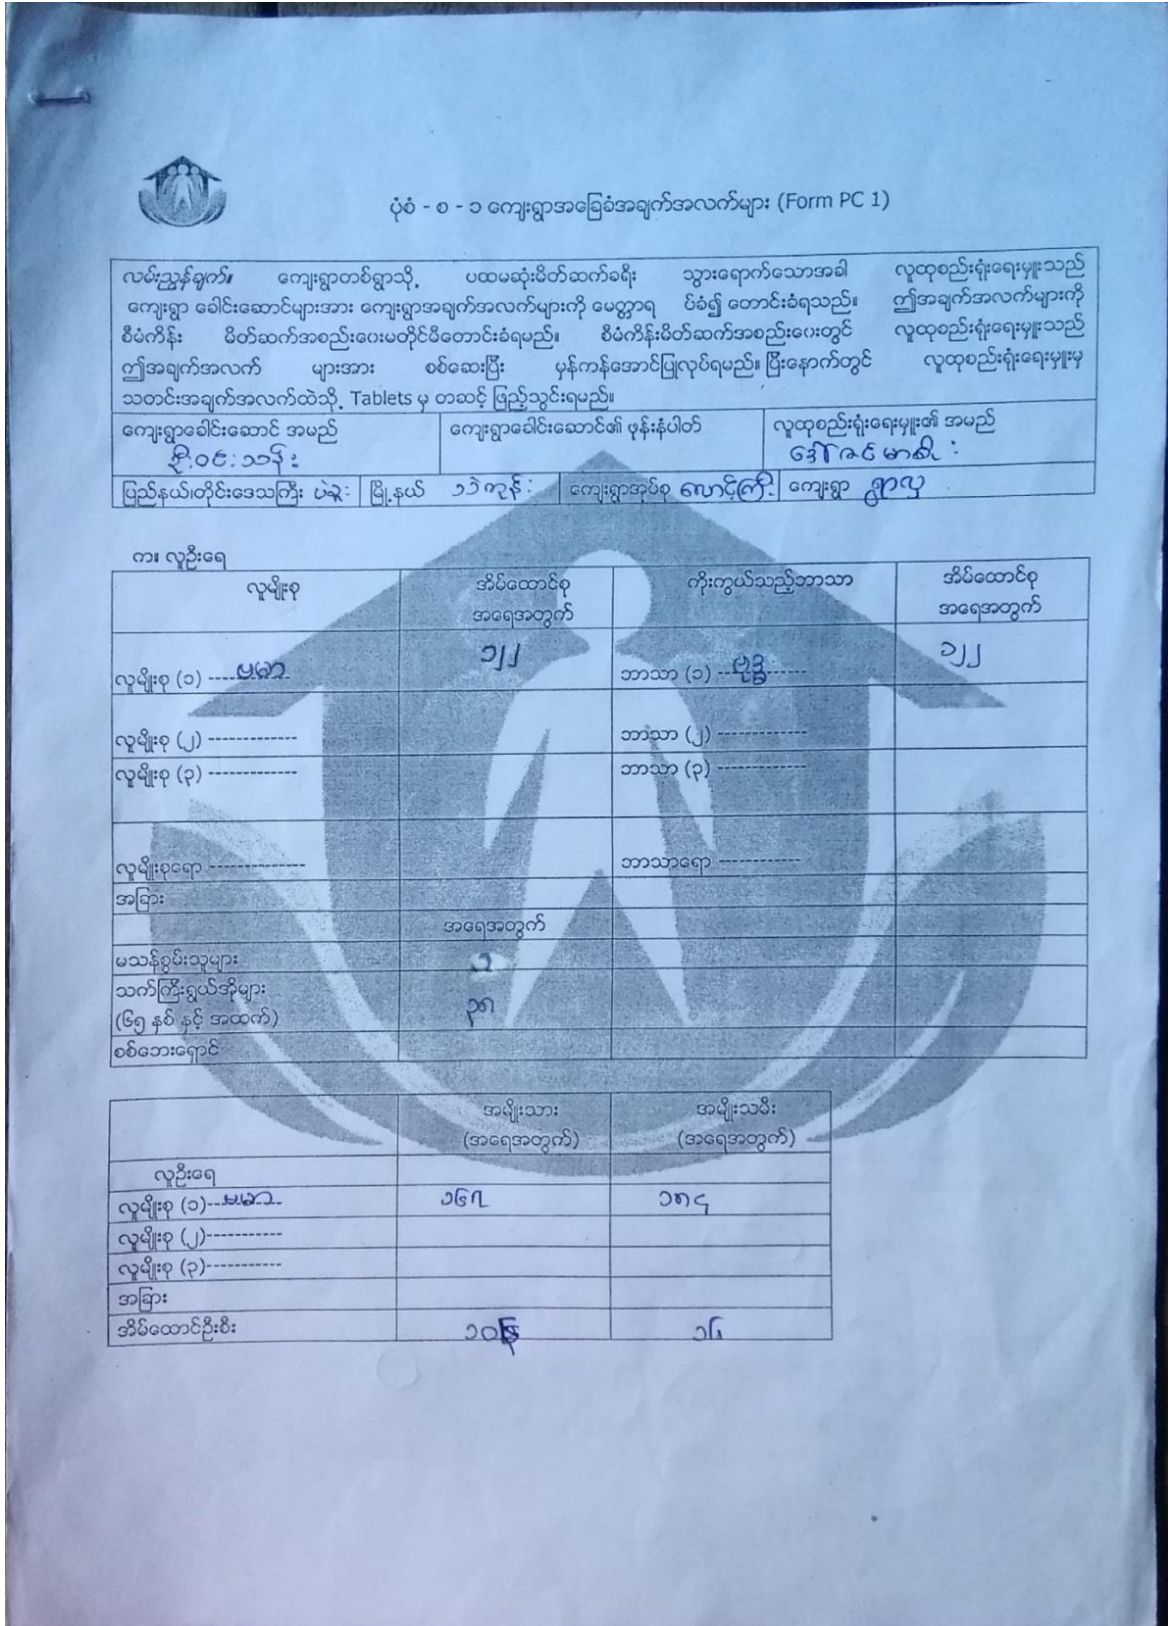 ပုံစံ - စ - ၁ ကျေးရွာအခြေခံအချက်အလက်များ (Form PC 1)
လမ်းညွှန်ချက်။ ကျေးရွာတစ်ရွာသို့ ပထမဆုံးမိတ်ဆက်ခရီး သွားရောက်သောအခါ လူထုစည်းရုံးရေးမှူးသည်
ကျေးရွာ ခေါင်းဆောင်များအား ကျေးရွာအချက်အလက်များကို မေတ္တာရ ပ်ခံ၍ တောင်းခံရသည်။ ဤအချက်အလက်များကို
စီမံကိန်း မိတ်ဆက်အစည်းဝေးမတိုင်မီတောင်းခံရမည်။ စီမံကိန်းမိတ်ဆက်အစည်းဝေးတွင် လူထုစည်းရုံးရေးမှူးသည်
ဤအချက်အလက် များအား စစ်ဆေးပြီး မှန်ကန်အောင်ပြုလုပ်ရမည်။ ပြီးနောက်တွင် လူထုစည်းရုံးရေးမှူးမှ
သတင်းအချက်အလက်ထဲသို့ Tablets မှ တဆင့် ဖြည့်သွင်းရမည်။
ကျေးရွာခေါင်းဆောင် အမည် ကျေးရွာခေါင်းဆောင်၏ ဖုန်းနံပါတ် လူထုစည်းရုံးရေးမှူး၏ အမည်
ဦးဝင်းသန်း ဒေါ်ဇင်မာ
ပြည်နယ်၊တိုင်းဒေသကြီး ပဲခူး မြို့နယ် သဲကုန်း ကျေးရွာအုပ်စု လောင်းကြီး ကျေးရွာ ရွာလှ
က။ လူဦးရေ
လူမျိုးစု အိမ်ထောင်စု ကိုးကွယ်သည့်ဘာသာ အိမ်ထောင်စု
အရေအတွက် အရေအတွက်
လူမျိုးစု (၁) ----ဗမာ- ၁၂၂ ဘာသာ (၁) ---ဗုဒ္ဓ------ ၁၂၂
လူမျိုးစု (၂) ------------- ဘာသာ (၂) -------------
လူမျိုးစု (၃) ------------- ဘာသာ (၃) -------------
လူမျိုးစုရော -------------- ဘာသာရော ------------
အခြား
အရေအတွက်
မသန်စွမ်းသူများ
သက်ကြီးရွယ်အိုများ ၃၈
(၆၅ နှစ် နှင့် အထက်)
စစ်ဘေးရှောင်
အမျိုးသား အမျိုးသမီး
(အရေအတွက်) (အရေအတွက်)
လူဦးရေ
လူမျိုးစု (၁)--ဗမာ- ၁၆၇ ၁၈၄
လူမျိုးစု (၂)-----------
လူမျိုးစု (၃)-----------
အခြား
အိမ်ထောင်ဦးစီး ၁၆